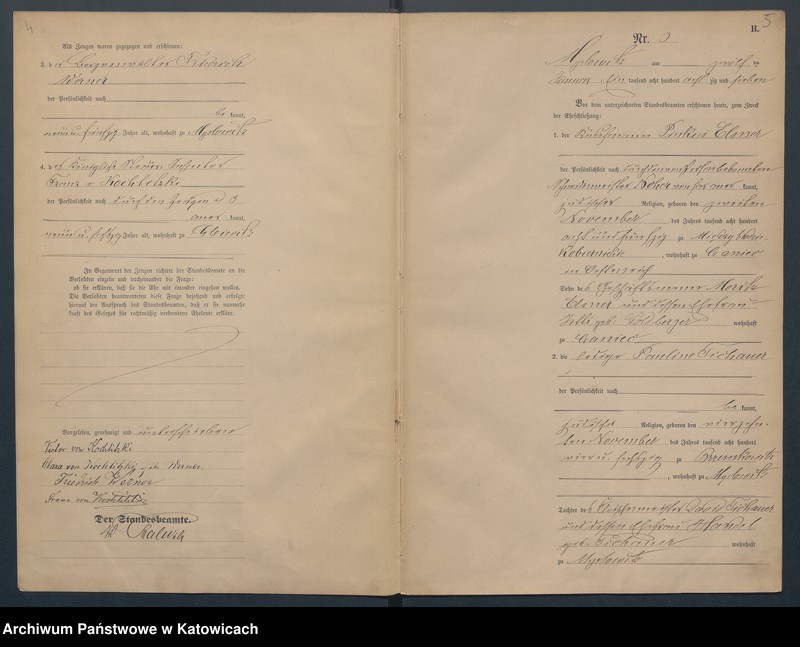 4
Als Zeugen waren zugezogen und erschienen:
3. der Friedrich
Werner
der Persönlichkeit nach
be kannt,
Jahre alt, wohnhaft zu Myslowitz
4. der Königliche
Franz v Kochtitzki
der Persönlichkeit nach durch den Zeugen ad 3
aner kannt,
neun u. Jahre alt, wohnhaft zu
In Gegenwart der Zeugen richtete der Standesbeamte an die
Verlobten einzeln und nacheinander die Frage:
ob sie erklären, daß sie die Ehe mit einander eingehen wollen.
Die Verlobten beantworteten diese Frage bejahend und erfolgte
hierauf der Ausspruch des Standesbeamten, daß er sie nunmehr
kraft des Gesetzes für rechtmäßig verbundene Eheleute erkläre.
Vorgelesen, genehmigt und unterschrieben
Victor von Kochtitzki
Clara von Kochtitzky, geb. Werner.
Friedrich Werner
Franz von Kochtitzki
Der Standesbeamte.
H. 5
Nr. 3
Myslowitz am zwölften
Januar Ein tausend acht hundert acht zig und sieben
Vor dem unterzeichneten Standesbeamten erschienen heute, zum Zweck
der Eheschließung:
1. der Pinkus Elsner
der Persönlichkeit nach durch den
Schneidermeister aner kannt,
jüdischer Religion, geboren den zweiten
November des Jahres tausend acht hundert
acht und fünfzig zu
Kobiernitz, wohnhaft zu Caniec
in Oesterreich
Sohn des Moritz
Elsner und dessen Ehefrau
geb. Goldberger wohnhaft
zu Caniec
2. die ledige Pauline Tichauer
der Persönlichkeit nach
be kannt,
jüdischer Religion, geboren den vierzehn-
ten November des Jahres tausend acht hundert
vier u. sechszig zu Brzenskowitz
, wohnhaft zu Myslowitz
Tochter des David Tichauer
und dessen Ehefrau Handel
geb. Tichauer wohnhaft
zu Myslowitz
Archiwum Państwowe w Katowicach